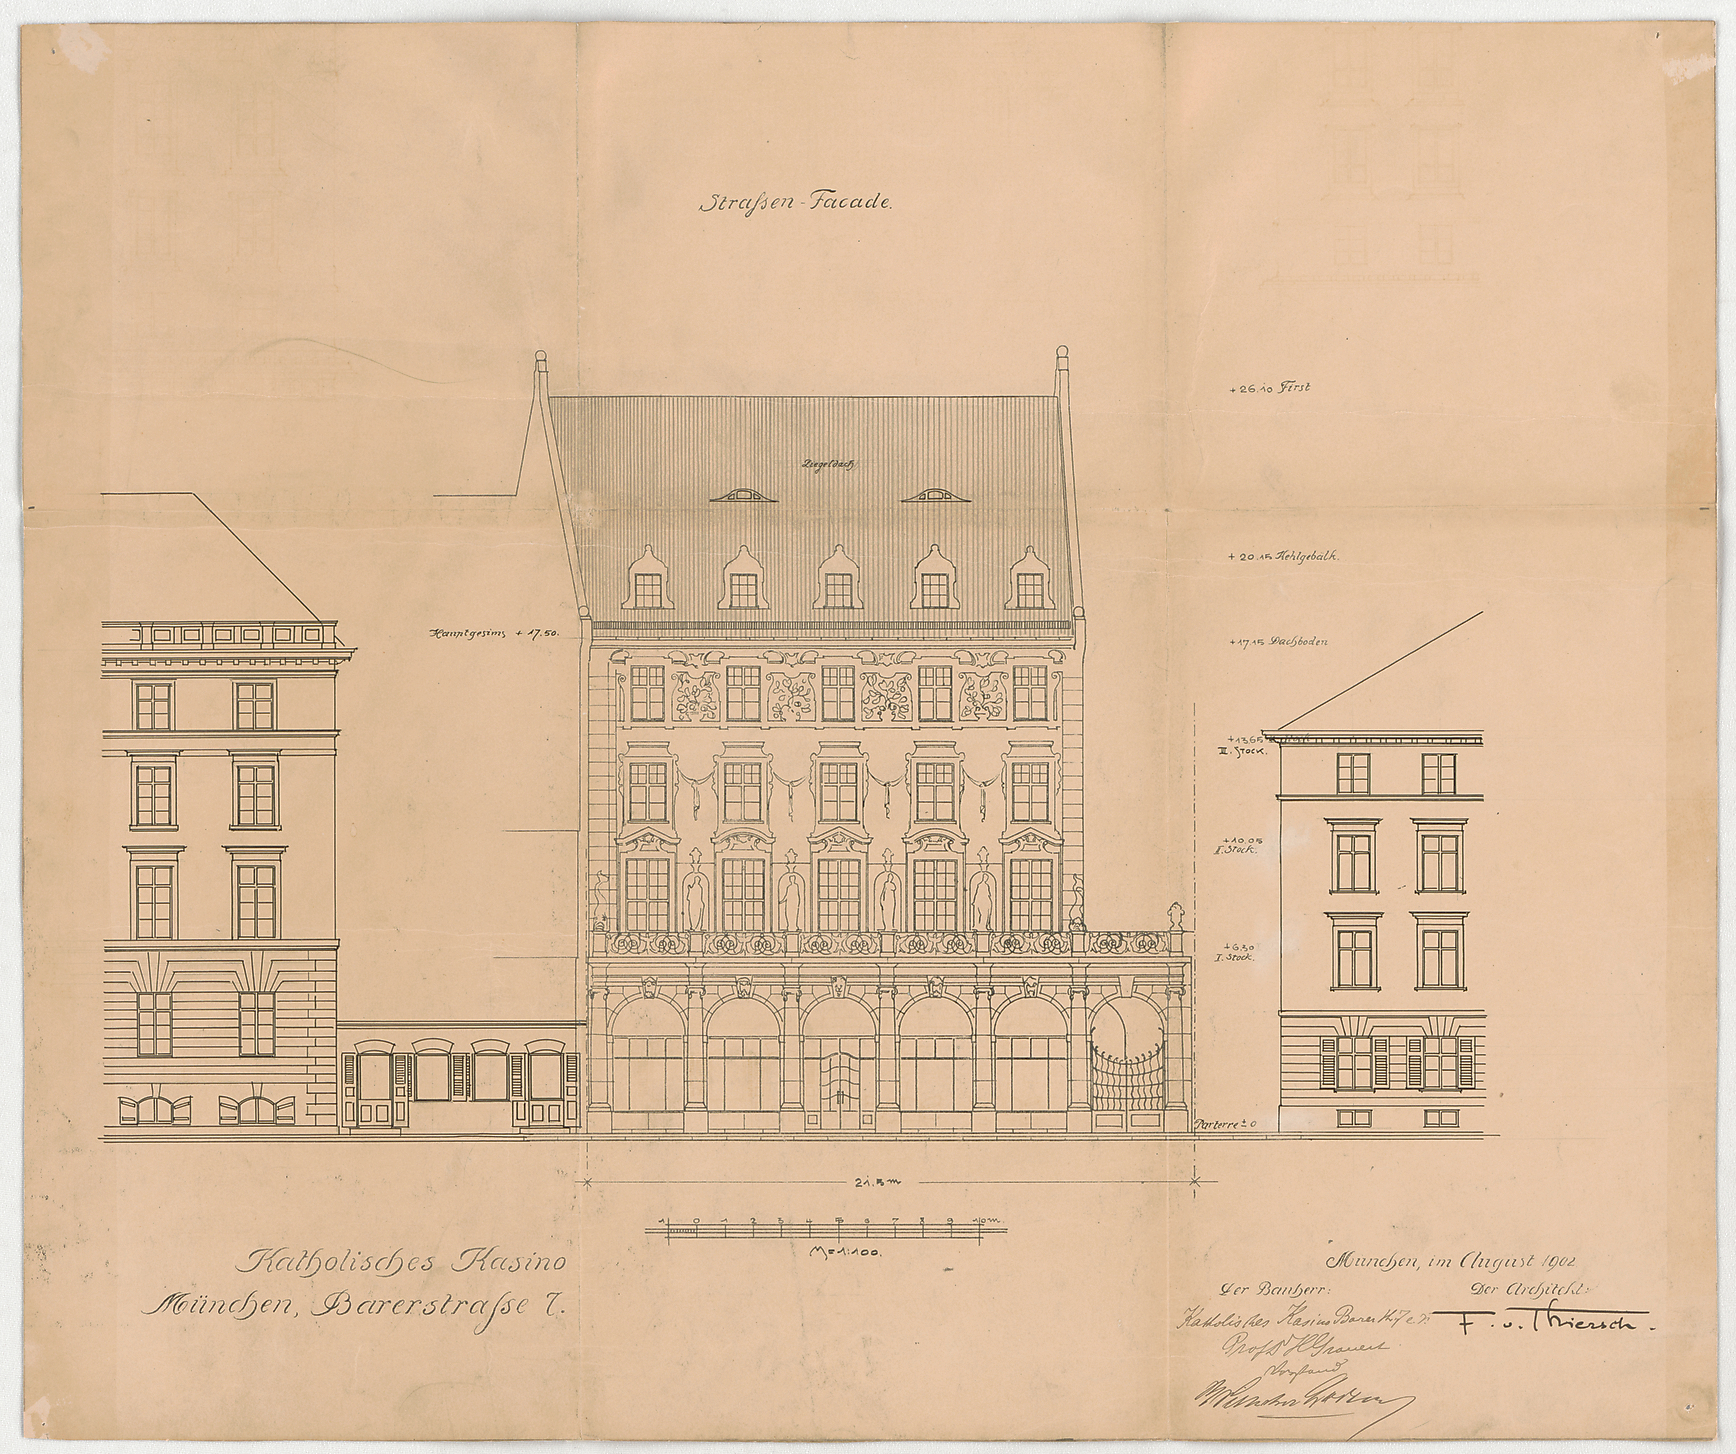 Straſsen-Facade.
+ 26.10 First
Ziegeldach
+ 20.15 Kehlgebälk.
Hauptgesims + 17.50.
+ 17.15 Dachboden
+ 13,65
III. Stock.
+ 10.05
II. Stock.
+ 6,30
I. Stock.
Parterre ± 0
21.5 m
1 0 1 2 3 4 5 6 7 8 9 10 m.
M = 1:100.
Katholisches Kasino
München, Barerstraſse 7.
München, im August 1902
Der Bauherr: Der Architekt:
Katholisches Kasino Barerstr. 7 e. V. F. v. Thiersch.
Prof. Dr H Grauert
Vorstand